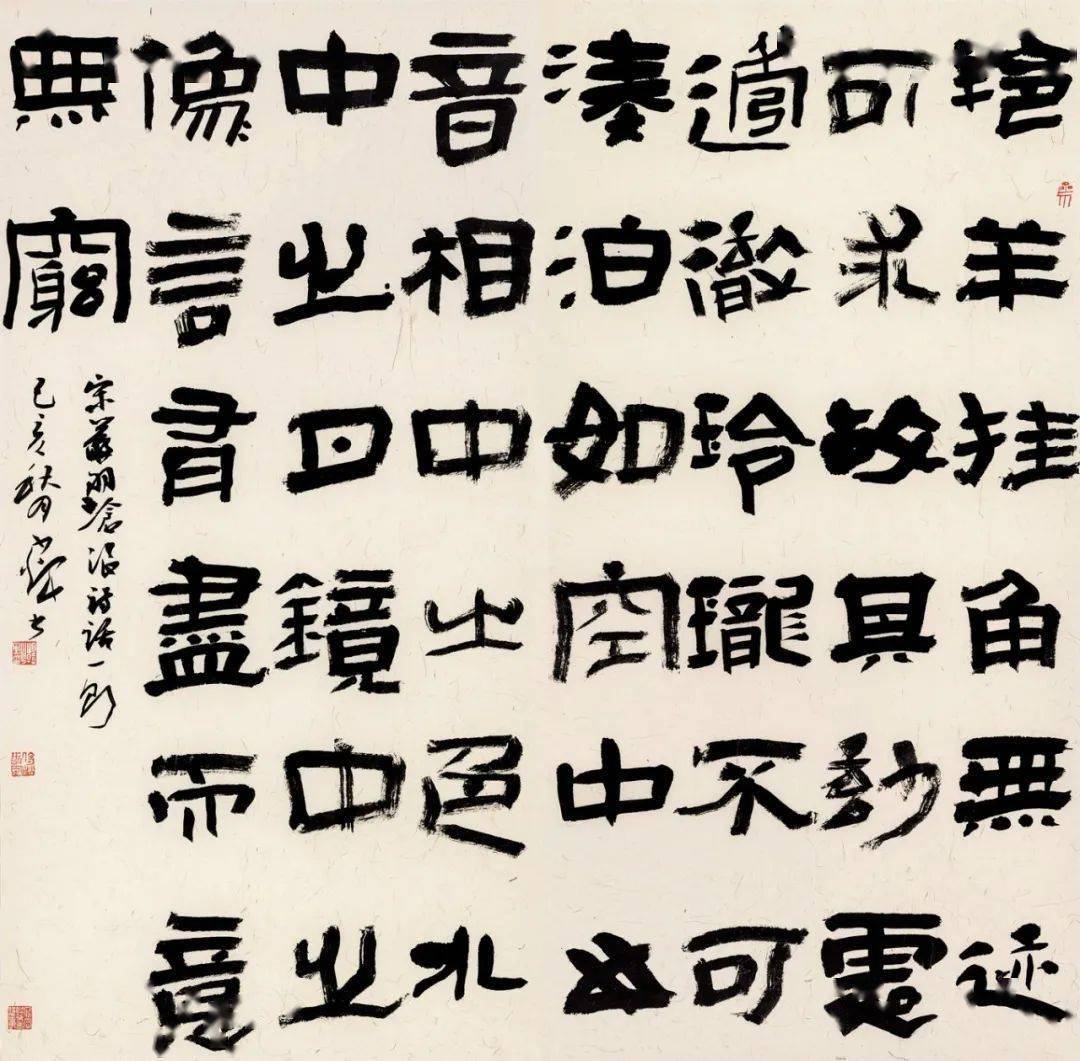 羚羊挂角無迹
可求故其妙處
透徹玲瓏不可
湊泊如空中之
音相中之色水
中之月鏡中之
像言有盡而意
無窮
宋嚴羽滄浪詩話一則
己亥秋月